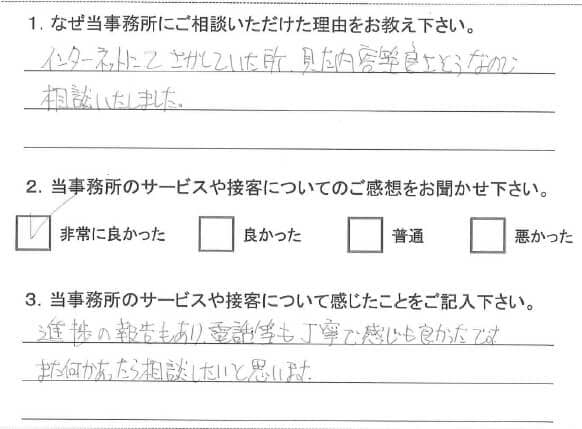 1. なぜ当事務所にご相談いただけた理由をお教え下さい。
インターネットにてさがしていた所、見た内容等良さそうなので
相談いたしました。
2. 当事務所のサービスや接客についてのご感想をお聞かせ下さい。
非常に良かった 良かった 普通 悪かった
3. 当事務所のサービスや接客について感じたことをご記入下さい。
進捗の報告もあり、電話等も丁寧で感じも良かったです
また何かあったら相談したいと思います